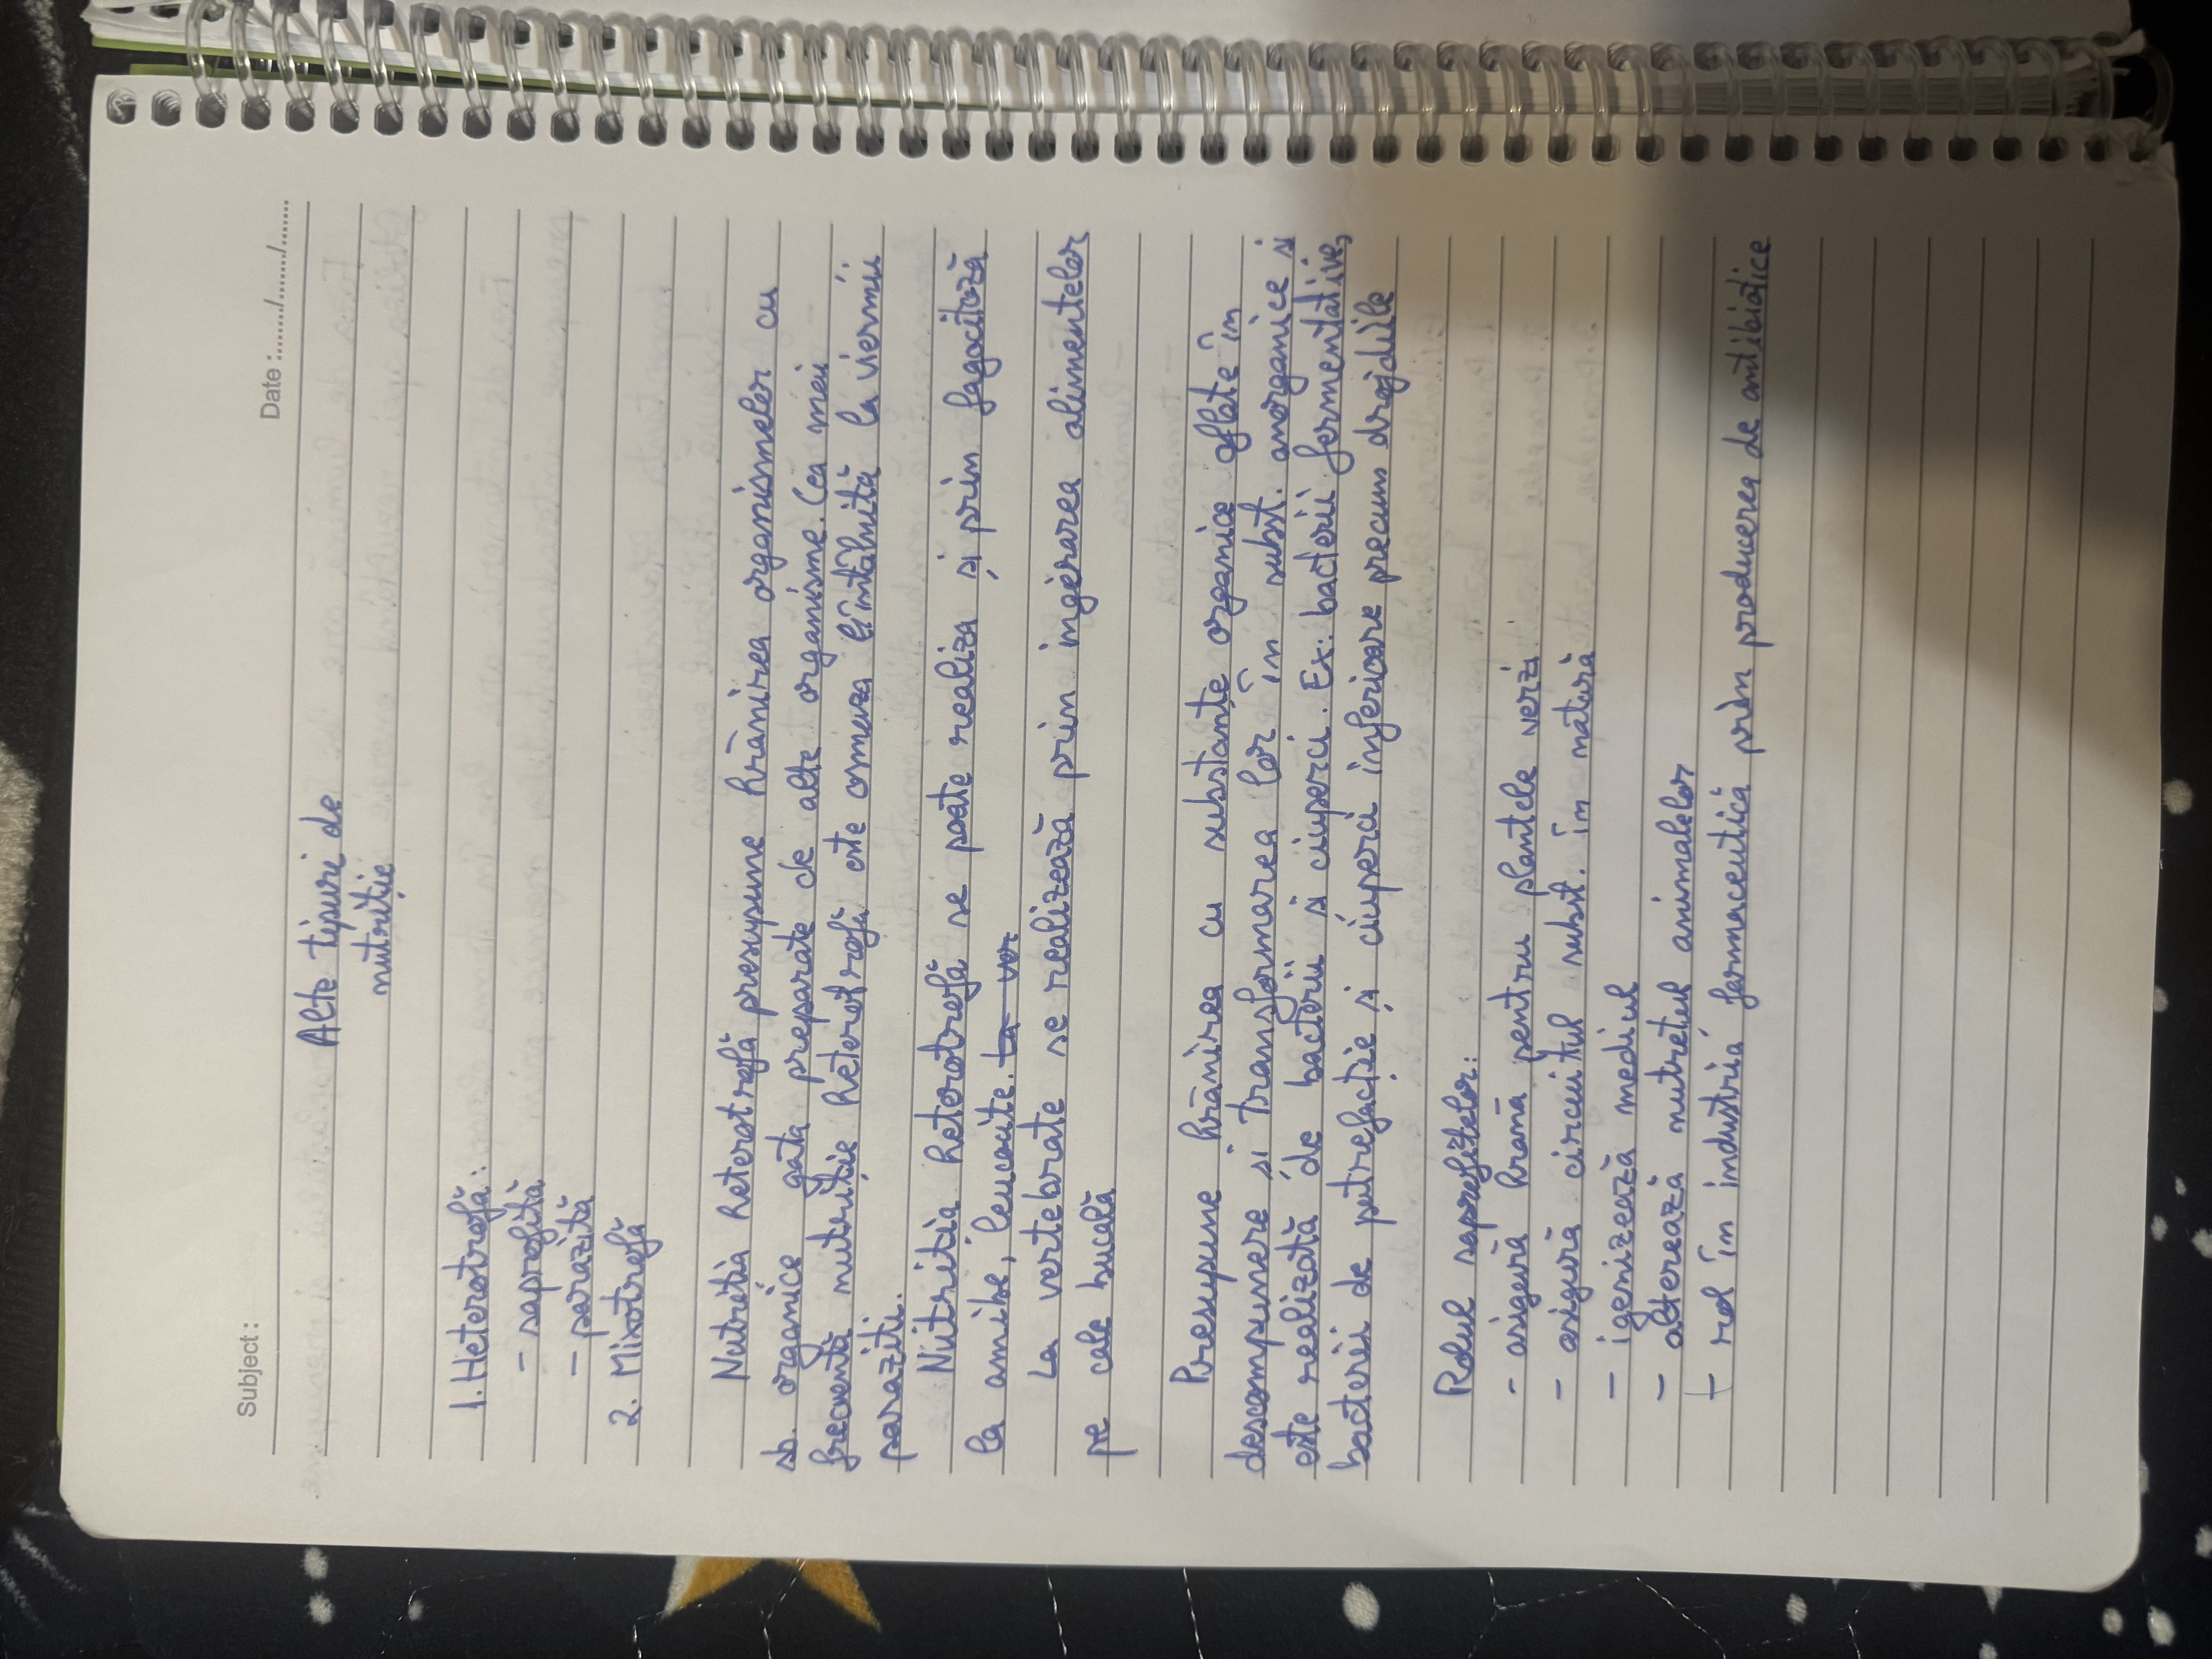 Subject :
Date :......../......../........
Alte tipuri de
nutriție
1. Heterotrofă:
- saprofită
- parazită
2. Mixotrofă
Nutriția heterotrofă presupune hrănirea organismelor cu
sb. organice gata preparate de alte organisme. Cea mai
frecventă nutriție heterotrofă este omoza întâlnită la viermii
paraziti.
Nutriția heterotrofă se poate realiza și prin fagocitoză
la amibe, leucocite.
La vertebrate se realizează prin ingerarea alimentelor
pe cale bucală
Presupune hrănirea cu substanțe organice aflate în
descompunere și transformarea lor în subst. anorganice și
este realizată de bacterii și ciuperci. Ex: bacterii fermentative,
bacterii de putrefacție și ciuperci inferioare precum drojdiile
Rolul saprofitelor:
- asigură hrană pentru plantele verzi
- asigură circuitul subst. în natură
- igenizează mediul
- alterează nutrețul animalelor
- rol în industria farmaceutică prin producerea de antibiotice